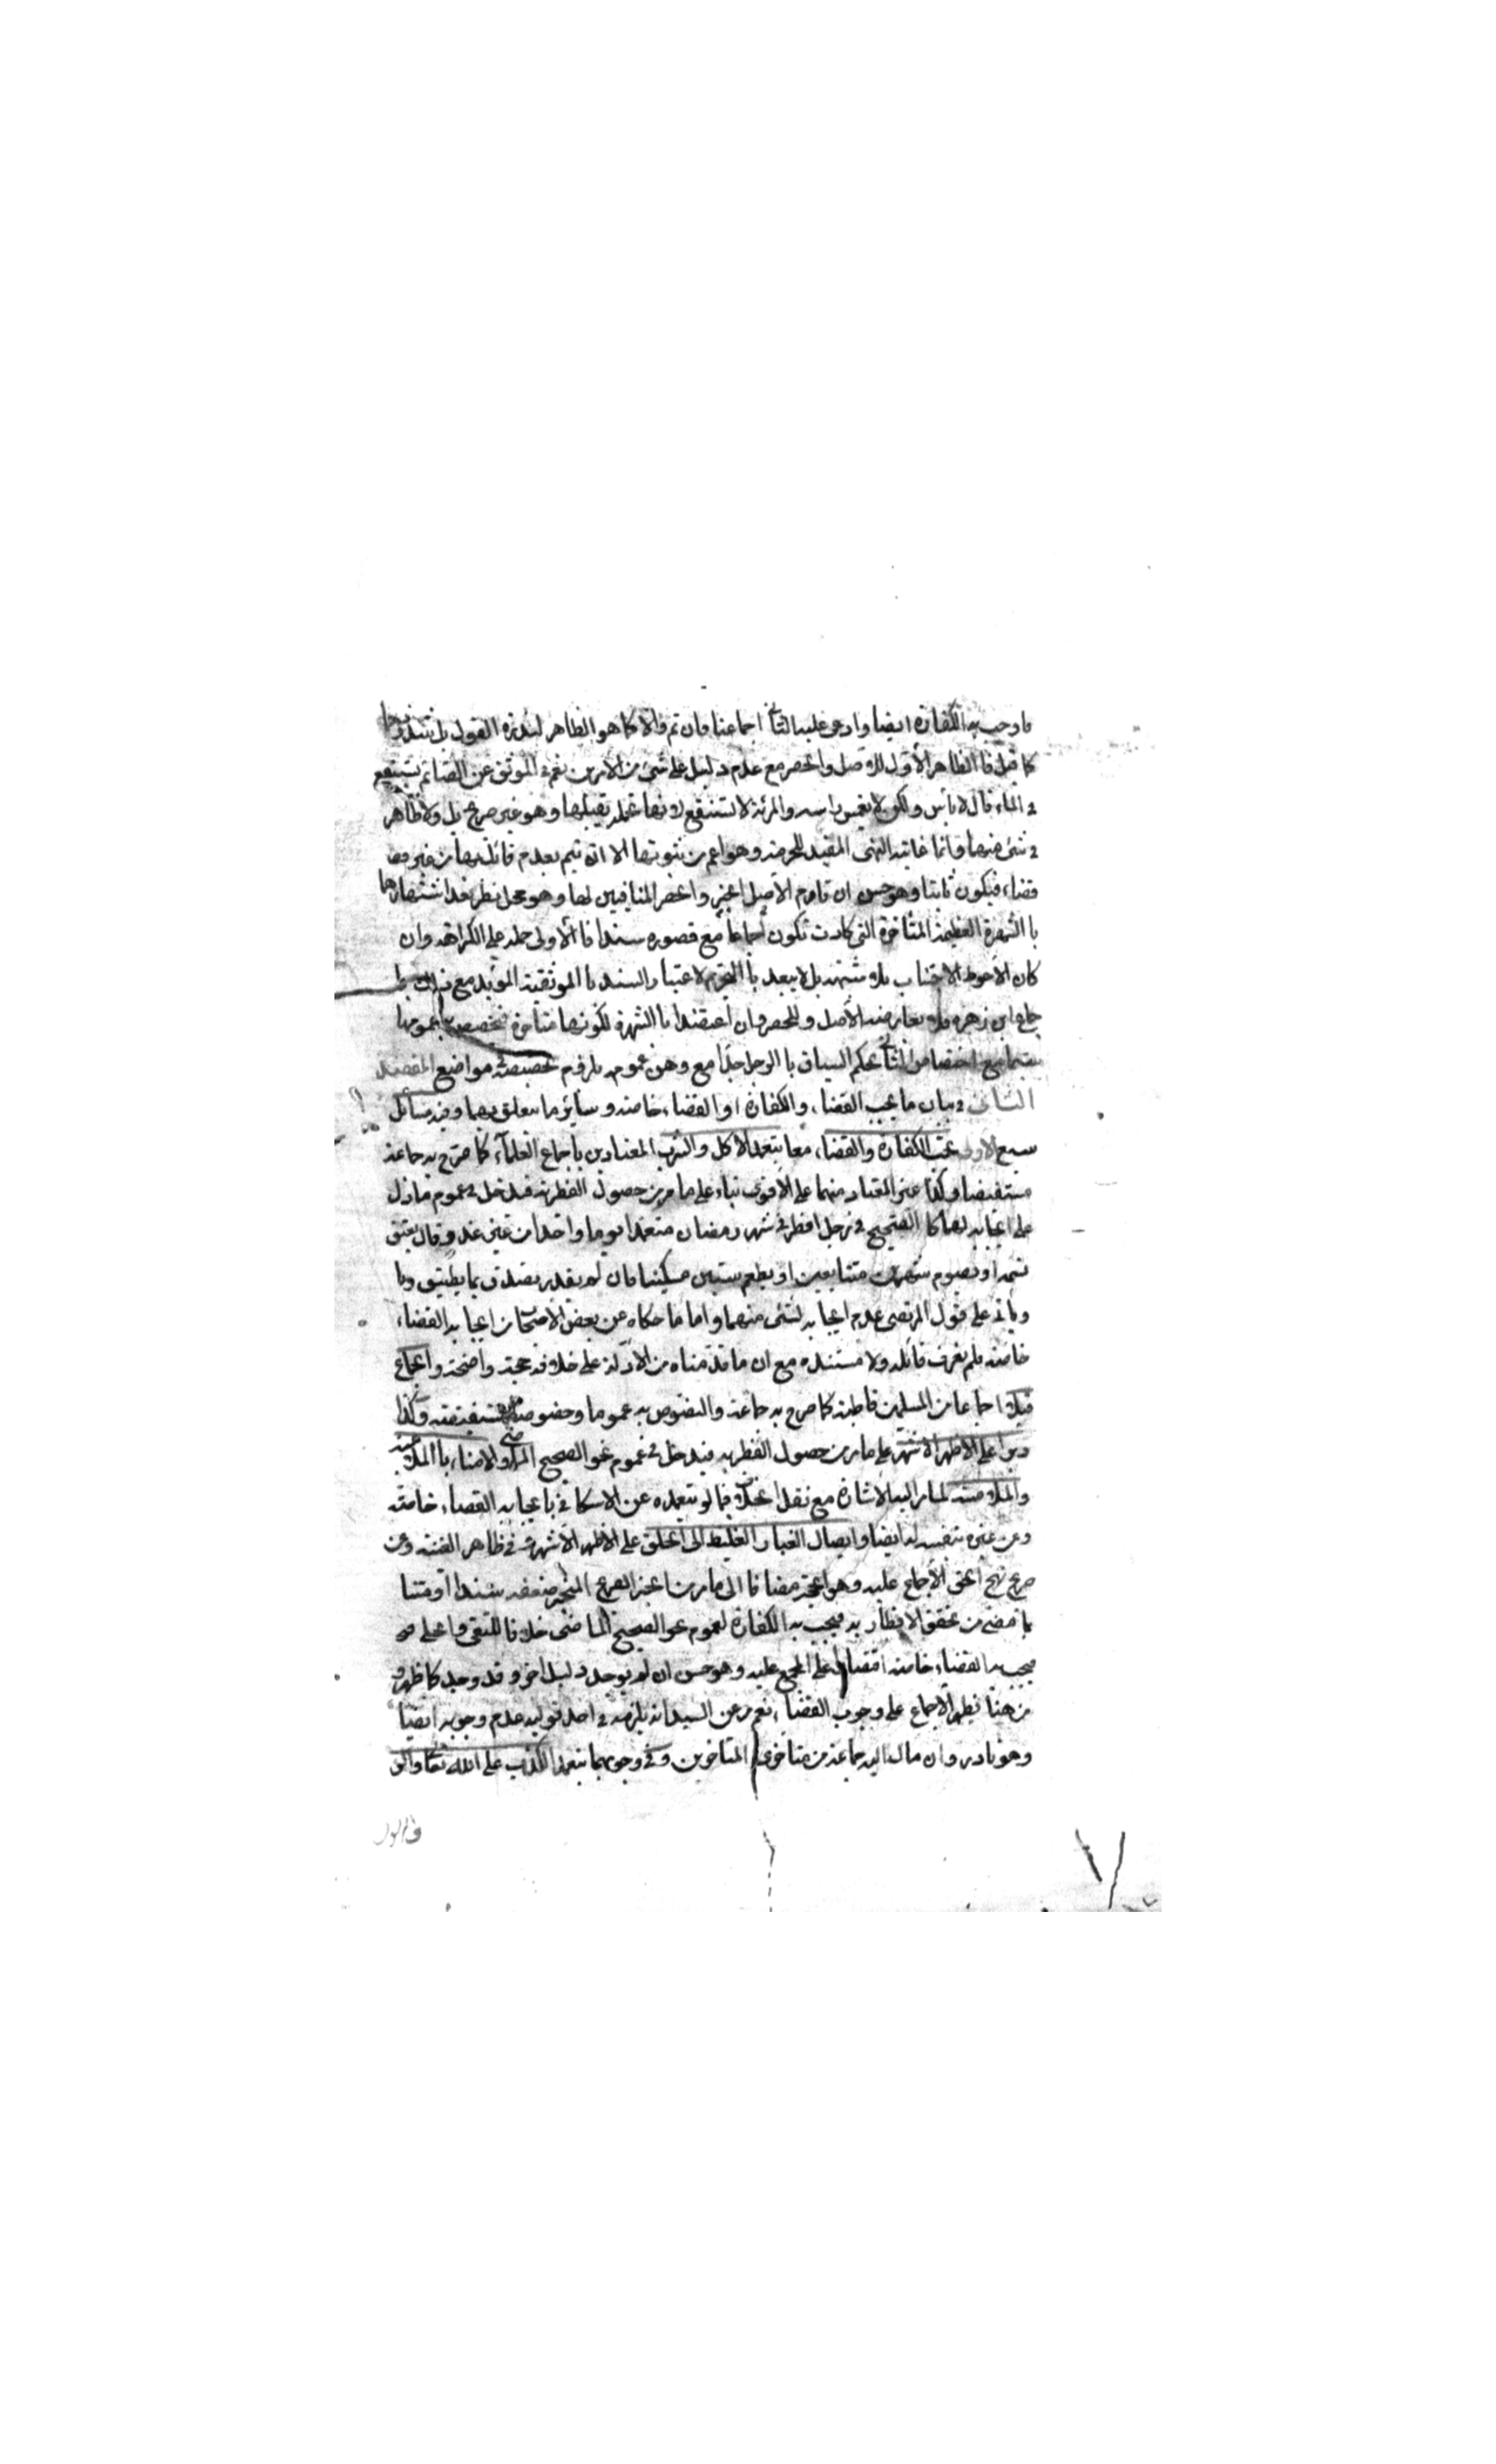 فاوجب به الكفارة ايضا وادعى عليه الثاني اجماعنا فان تم والا كما هو الظاهر لندرة القول بل
كما قيل فالظاهر الأول للاصل والحصر مع عدم دليل على شئ من الأمرين نعم في الموثق عن الصائم يستنقع
في الماء قال لا بأس ولكن لا يغمس راسه والمرئة لا تستنقع لانها تحمله بقبلها وهو غير صريح بل ولا ظاهر
في شئ منهما فانما غايته النهى المفيد للحرمة وهو اعم من ثبوتهما الا انه تيم بعدم قائل بها من غير
قضاء فيكون ثابتا وهو حسن ان قاوم الأصل الخبر والحصر المنافيين لها وهو محل نظر فقد اشتهارهما
بالشهرة العظيمة المتأخرة التي كادت تكون اجماعا مع قصوره سندا فالأولى حمله على الكراهة وان
كان الأحوط الاجتناب بلا شبهة بل لا يبعد بالتحريم لاعتبار السند بالموثقية المؤيد مع ذلك با
جماع ابن زهره فلا يعارضه الأصل والحصر وان اعتضدا بالشهرة لكونها متأخرة تخصيص عمومها
سيما مع اختصاص الثاني بحكم السياق بالرجل جدا مع وهن عمومه بلزوم تخصيصه في مواضع المقصد
الثاني في بيان ما يجب القضاء والكفارة او القضاء خاصة وسائر ما يتعلق بهما وفيه مسائل
سبع الأولى تجب الكفارة والقضاء معا بتعمد الاكل والشرب المعتادين باجماع العلماء كما صرح به جماعة
مستفيضا وكذا غير المعتاد منهما على الأقوى بناء على ما مر من حصول الفطر به فيدخل في عموم ما دل
على ايجابه لهما كالصحيح في رجل افطر في شهر رمضان متعمدا يوما واحدا من غير عذر قال يعتق
نسمة او يصوم شهرين متتابعين او يطعم ستين مسكينا فان لم يقدر يصدق بما يطيق ويا
ويأتي على قول المرتضى عدم ايجابه لشئ منهما واما ما حكاه عن بعض الأصحاب من ايجابه القضاء
خاصة فلم نعرف قائله ولا مستنده مع ان ما قدمناه من الأدلة على خلافه حجة واضحة والجماع
قبلا اجماعا من المسلمين قاطبة كما صرح به جماعة والنصوص به عموما وخصوصا مستفيضة وكذا
دبرا على الأظهر الأشهر على ما مر من حصول الفطر به فيدخل في عموم نحو الصحيح المار والامناء بالملاعبة
والملامسة لما مر اليه الاشارة مع نقل الخلاف فيما لو تعمده عن الاسكافي بايجابه القضاء خاصة
وعن غيره تقسيمه له ايضا وايصال الغبار الغليظ الى الحلق على الأظهر الأشهر وفي ظاهر الغنية وعن
صريح نهج الحق الأجماع عليه وهو الحجة مضافا الى ما مر من الخبر الصريح المنجبر ضعفه سندا او متنا
بما مضى من تحقق الافطار به فيجب به الكفارة لعموم نحو الصحيح الماضى خلافا للتقى والحلي
فيجب به القضاء خاصة اقتصارا على المجمع عليه وهو حسن ان لم يوجد دليل اخر وقد وجد كما ظهر و
من هنا يظهر الاجماع على وجوب القضاء نعم عن السيد انه يلزمه في احد قوليه عدم وجوبه ايضا
وهو نادر وان مال اليه جماعة من متأخرى المتأخرين وفي وجوبهما بتعمد الكذب على الله تعالى وال